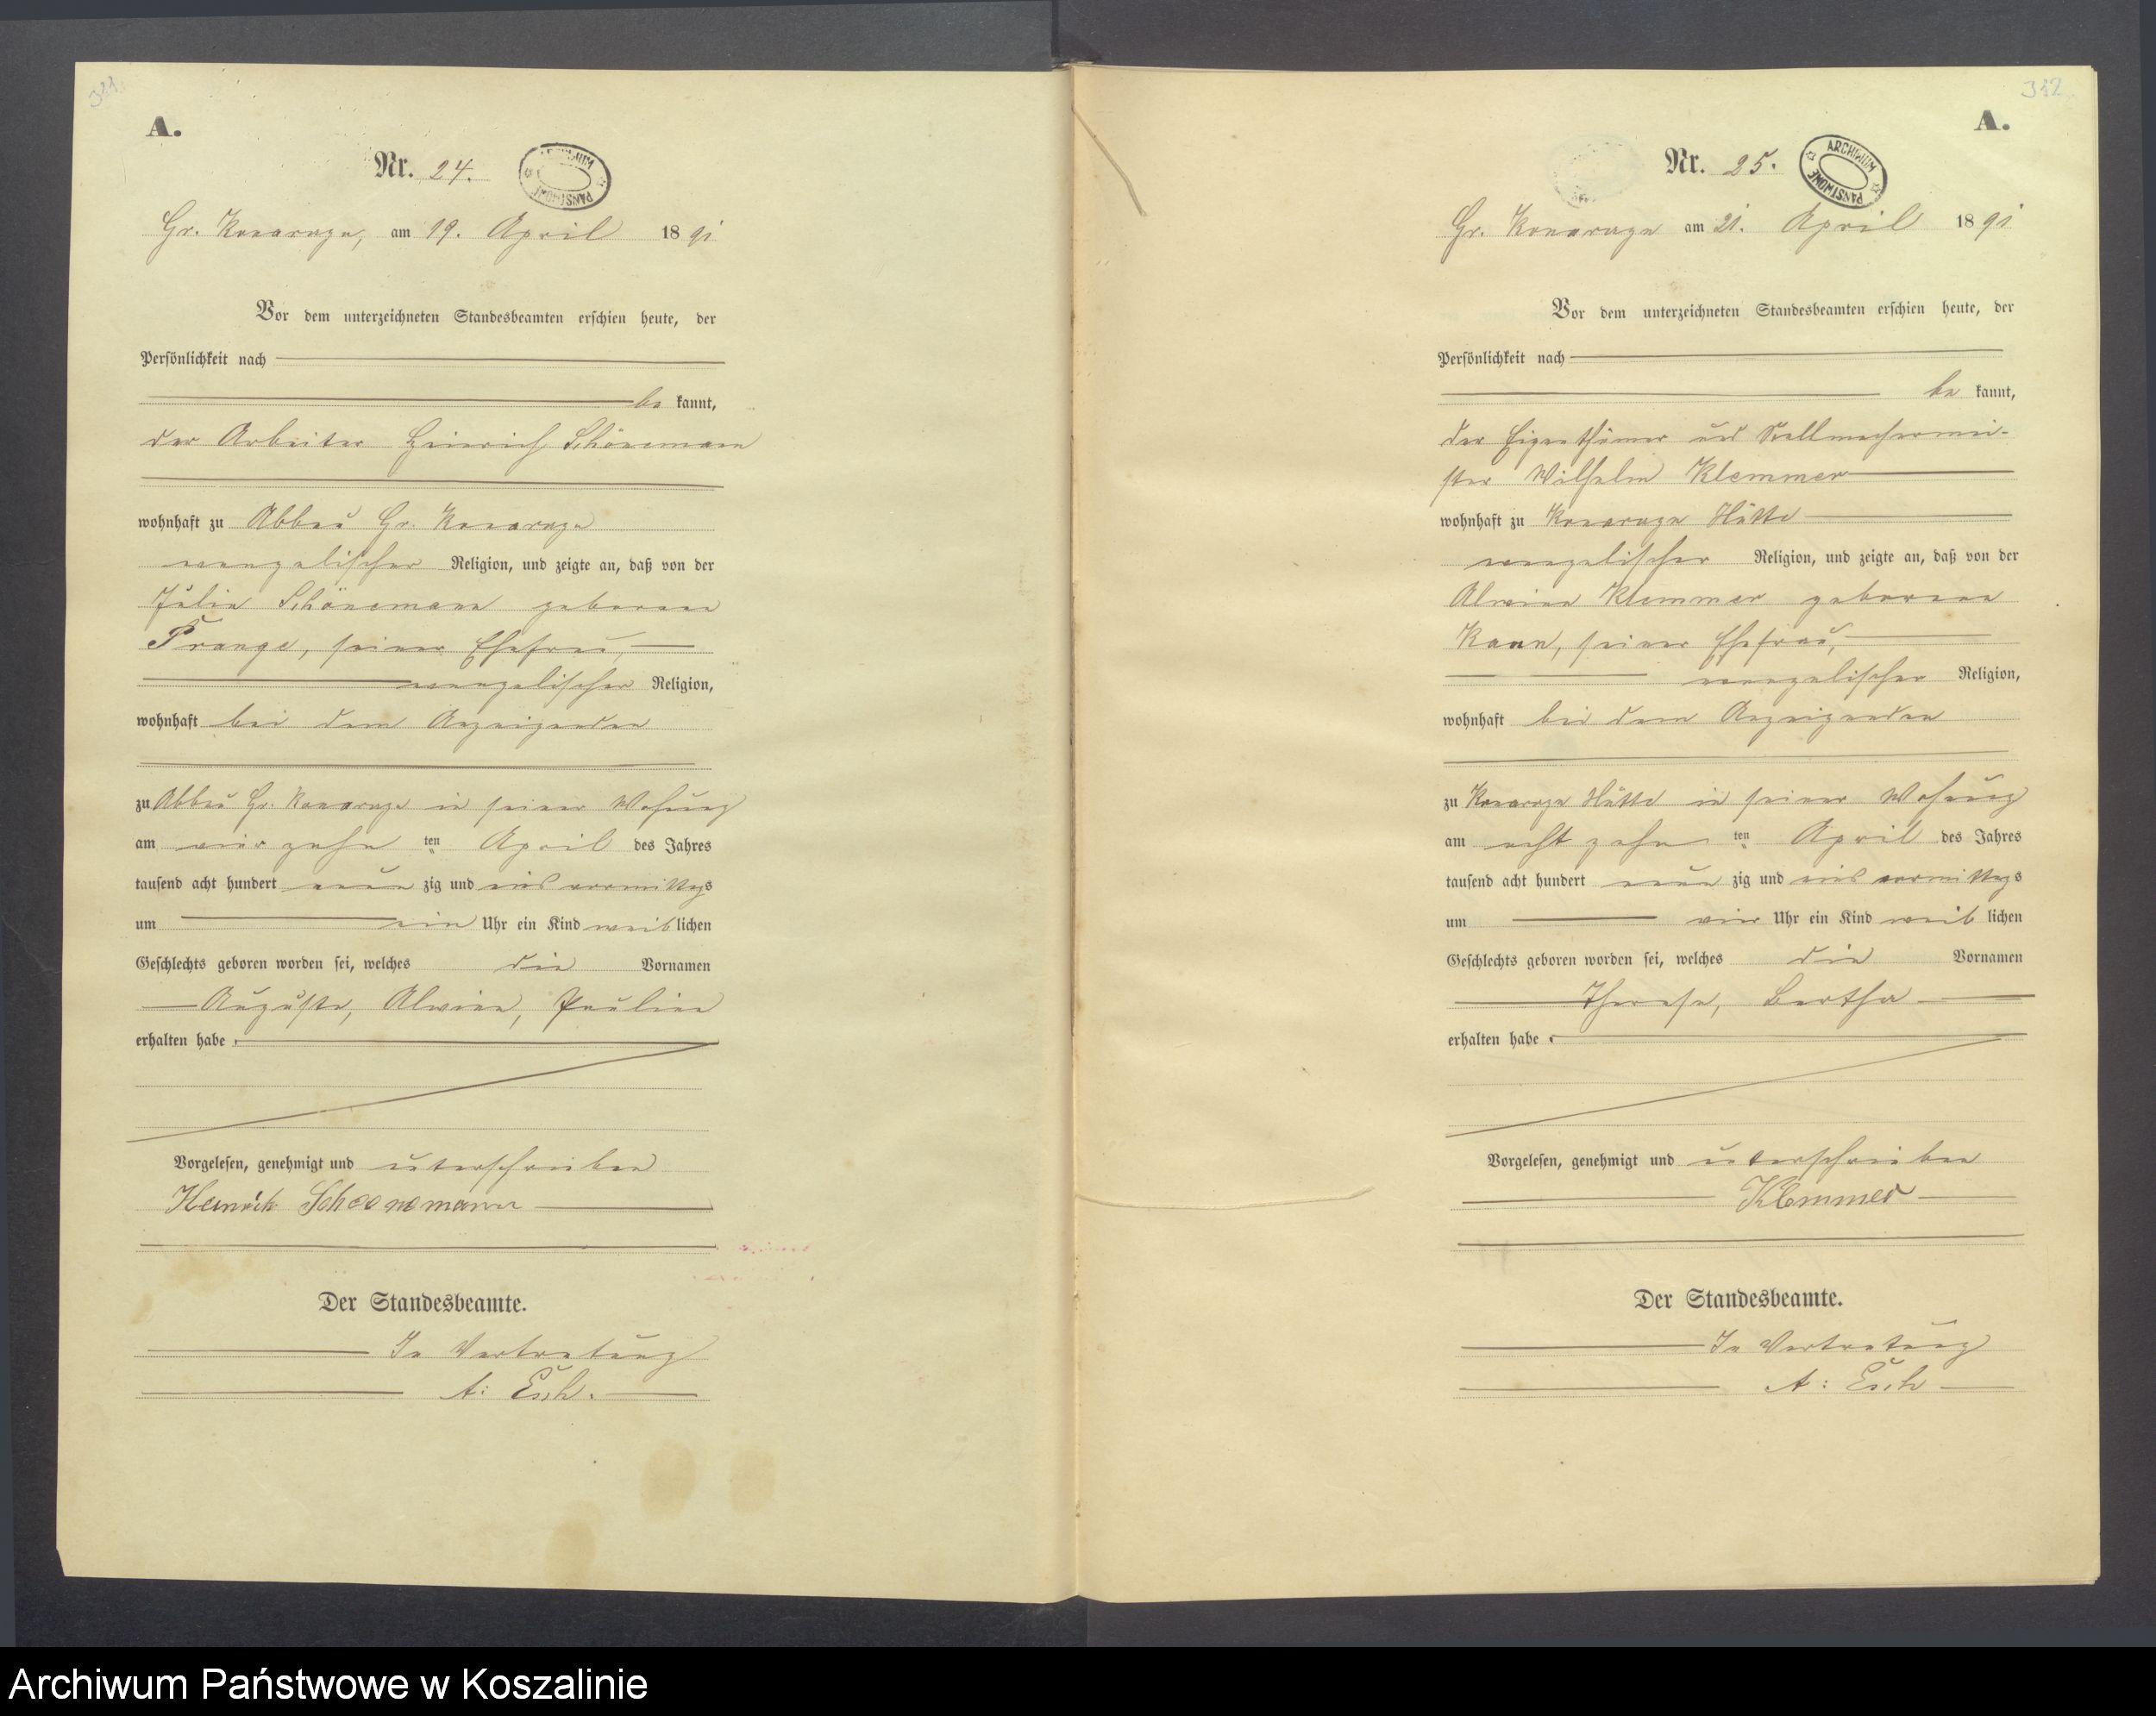 311.
A.
Nr. 24.
ARCHIWUM PAŃSTWOWE
Gr. Konarzyn, am 19. April 1891
Vor dem unterzeichneten Standesbeamten erschien heute, der
Persönlichkeit nach
be kannt,
der Arbeiter Heinrich Schönemann
wohnhaft zu Abbau Gr. Konarzyn
evangelischer Religion, und zeigte an, daß von der
Julie Schönemann geborene
Prange, seiner Ehefrau,
evangelischer Religion,
wohnhaft bei dem Anzeigenden
zu Abbau Gr. Konarzyn in seiner Wohnung
am vierzehn ten April des Jahres
tausend acht hundert neun zig und eins vormittags
um ein Uhr ein Kind weib lichen
Geschlechts geboren worden sei, welches die Vornamen
Auguste, Alwine, Pauline
erhalten habe.
Vorgelesen, genehmigt und unterschrieben
Heinrich Schoenemann
Der Standesbeamte.
In Vertretung
A: Esch.
312
A.
Nr. 25.
ARCHIWUM PAŃSTWOWE
Gr. Konarzyn am 21. April 1891
Vor dem unterzeichneten Standesbeamten erschien heute, der
Persönlichkeit nach
be kannt,
der Eigenthümer und Stellmachermei-
ster Wilhelm Klemmer
wohnhaft zu Konarzyn Hütte
evangelischer Religion, und zeigte an, daß von der
Alwine Klemmer geborene
Kann, seiner Ehefrau,
evangelischer Religion,
wohnhaft bei dem Anzeigenden
zu Konarzyn Hütte in seiner Wohnung
am acht zehn ten April des Jahres
tausend acht hundert neun zig und eins vormittags
um vier Uhr ein Kind weib lichen
Geschlechts geboren worden sei, welches die Vornamen
Therese, Bertha
erhalten habe.
Vorgelesen, genehmigt und unterschrieben
Klemmer
Der Standesbeamte.
In Vertretung
A: Esch
Archiwum Państwowe w Koszalinie